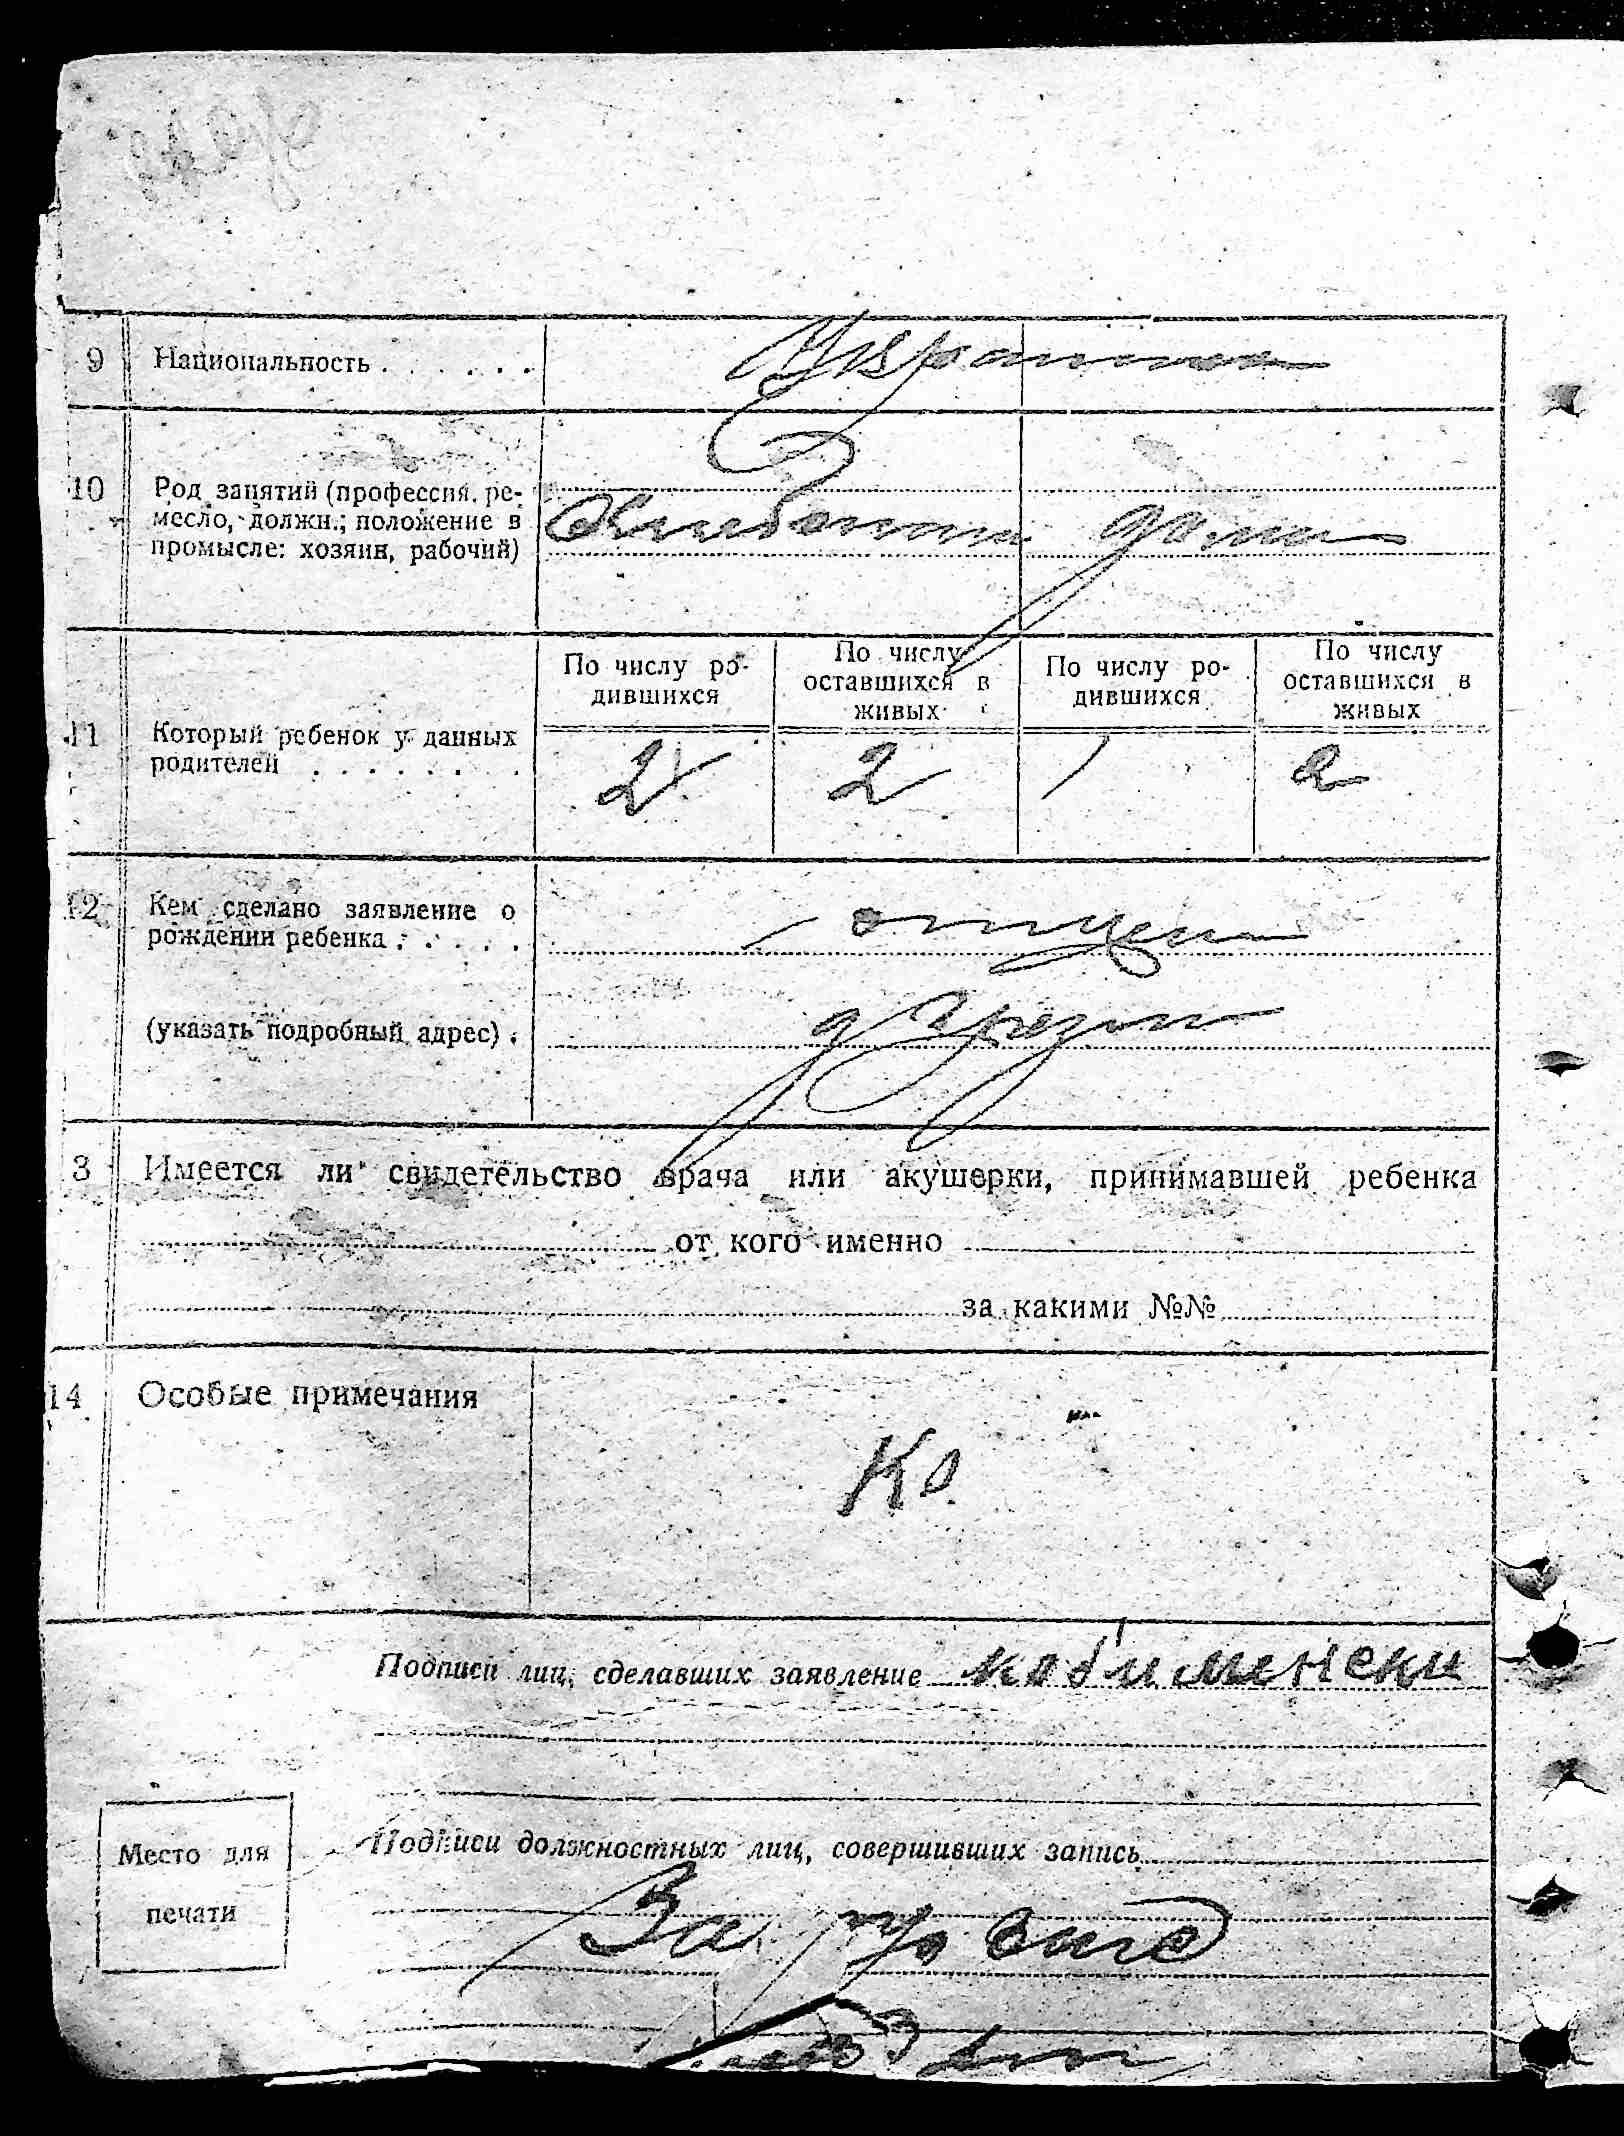 9 Национальность . . . . . . Украинка
10 Род занятий (профессия, ре-
месло, должн.; положение в дома
промысле: хозяин, рабочий)
По числу ро-
дившихся
По числу
оставшихся в
живых
По числу ро-
дившихся
По числу
оставшихся в
живых
11 Который ребенок у данных
родителей . . . . . . . 2 2 / 2
12 Кем сделано заявление о
рождении ребенка . . . . . отцем
(указать подробный адрес) .
3 Имеется ли свидетельство врача или акушерки, принимавшей ребенка
от кого именно
за какими №№
14 Особые примечания
Ко
Подписи лиц, сделавших заявление
Подписи должностных лиц, совершивших запись
Место для
печати
За